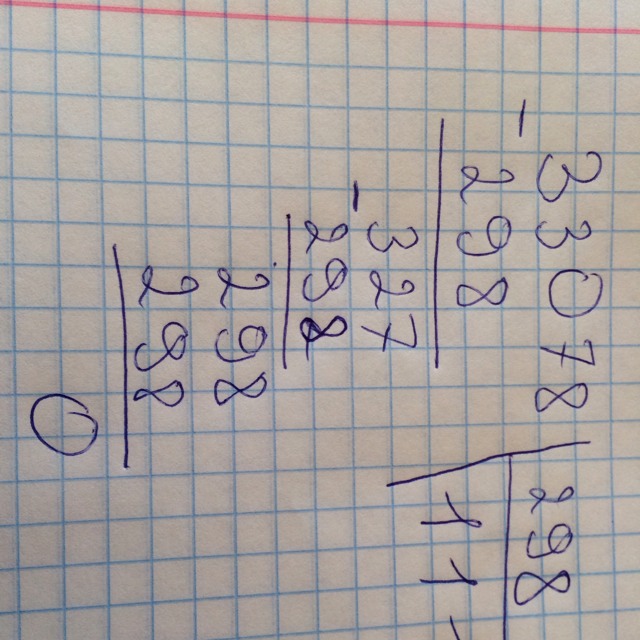 33078 298
- 298 11
327
- 298
298
298
0